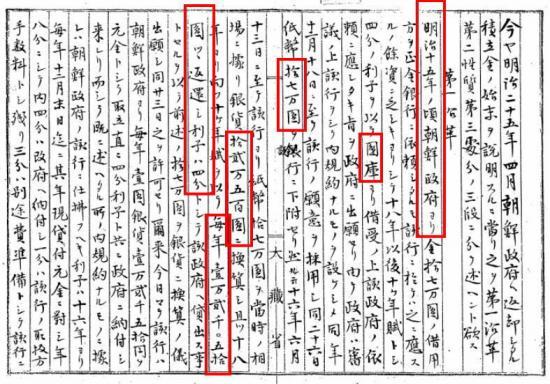 今ヤ明治二十五年四月朝鮮政府ヘ返却シタル
積立金ノ始末ヲ説明スルニ當リ之ヲ第一沿革
第二性質第三處分ノ三段ニ分チ述ヘント欲ス
第一沿革
明治十五年ノ頃朝鮮政府ヨリ金拾七万圓借用
方ヲ正金銀行ニ依頼シタルモ該行ニ於テハ之ニ應ス
ルノ餘資ニ乏シキヨリ十八年以後十ヶ年賦トシ
四分ノ利子ヲ以テ國庫ヨリ借受ノ上該政府ノ依
頼ニ應シタキ旨ヲ政府ニ出願セリ政府ハ審
議ノ上該行ト内規約ナルモノヲ設ケシメ同年
十二月十八日ニ至リ該行ノ願意ヲ採用シ同二十六日
紙幣拾七万圓ヲ銀行ニ下附セリ然ルニ十六年六月
大藏省
十三日ニ至テ該行ヨリ紙幣拾七万圓ヲ當時ノ相
場ニ據リ銀貨拾貳万五百圓ニ換算シ且ツ十八
年ヨリ向フ十ヶ年賦ヲ以テ毎年壹万貳千〇五拾
圓ツヽ返還シ利子ハ四分トシテ該政府ヘ貸出ス事
トセルヲ以テ前述ノ拾七万圓ヲ銀貨ニ換算ノ儀
出願シ同廿三日之ヲ許可セリ爾来今日マテ該行ハ
朝鮮政府ヨリ毎年壹圓銀貨壹万貳千五拾圓ヲ
元金トシテ取立直ニ四分利子ト共ニ政府ニ納付シ
来レリ而シテ既ニ述ヘタル所ノ内規約ナルモノニ據
レハ朝鮮政府ヨリ該行ニ仕拂フヘキ利子ハ十六年ヨリ
毎年十二月末日迄ニ其年現貸付元金ニ對シ年
八分ニシテ内四分ハ政府ヘ納付シ一分ハ該行ノ取扱方
手數料トシ殘リ三分ハ別途費準備トシテ該行ニ